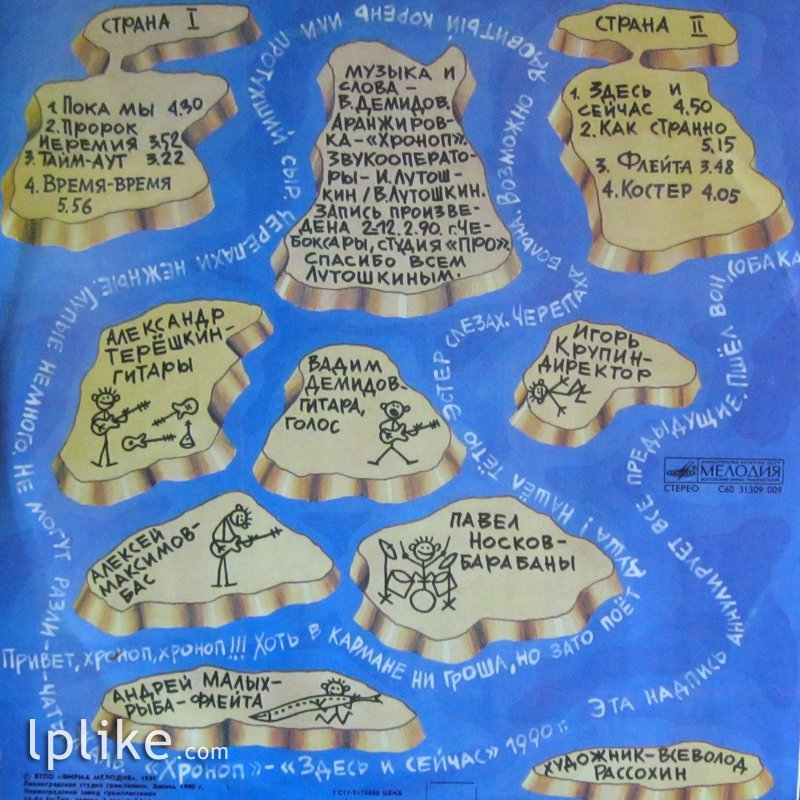 СТРАНА I
1. ПОКА МЫ 4.30
2. ПРОРОК
ИЕРЕМИЯ 3.52
3. ТАЙМ-АУТ 3.22
4. ВРЕМЯ-ВРЕМЯ
5.56
МУЗЫКА И
СЛОВА -
В. ДЕМИДОВ.
АРАНЖИРОВ-
КА-«ХРОНОП».
ЗВУКООПЕРАТО-
РЫ- И.ЛУТОШ-
КИН/В.ЛУТОШКИН.
ЗАПИСЬ ПРОИЗВЕ-
ДЕНА 2-12.2.90. Г.ЧЕ-
БОКСАРЫ, СТУДИЯ «ПРО».
СПАСИБО ВСЕМ
ЛУТОШКИНЫМ.
СТРАНА II
1. ЗДЕСЬ И
СЕЙЧАС 4.50
2. КАК СТРАННО
5.15
3. ФЛЕЙТА 3.48
4. КОСТЕР 4.05
АЛЕКСАНДР
ТЕРЁШКИН-
ГИТАРЫ
ВАДИМ
ДЕМИДОВ-
ГИТАРА,
ГОЛОС
ИГОРЬ
КРУПИН-
ДИРЕКТОР
МЕЛОДИЯ
СТЕРЕО С60 31309 009
АЛЕКСЕЙ
МАКСИМОВ-
БАС
ПАВЕЛ
НОСКОВ-
БАРАБАНЫ
АНДРЕЙ МАЛЫХ-
РЫБА-ФЛЕЙТА
ХУДОЖНИК-ВСЕВОЛОД
РАССОХИН
ПРИВЕТ, ХРОНОП, ХРОНОП!!! ХОТЬ В КАРМАНЕ НИ ГРОША, НО ЗАТО ПОЁТ ДУША! НАШЁЛ ТЁТЮ ЭСТЕР В СЛЕЗАХ. ЧЕРЕПАХА БОЛЬНА. ВОЗМОЖНО ЯДОВИТЫЙ КОРЕНЬ ИЛИ ПРОТУХШИЙ СЫР. ЧЕРЕПАХИ НЕЖНЫЕ. ГЛУПЫЕ НЕМНОГО. НЕ МОГУТ РАЗЛИ-ЧАТЬ
«ХРОНОП»-«ЗДЕСЬ И СЕЙЧАС» 1990 г. ЭТА НАДПИСЬ АННУЛИРУЕТ ВСЕ ПРЕДЫДУЩИЕ. ПШЁЛ ВОН, СОБАКА
lplike.com
© ВТПО «ФИРМА МЕЛОДИЯ», 1991
Ленинградская студия грамзаписи. Запись 1990 г.
Ленинградский завод грампластинок